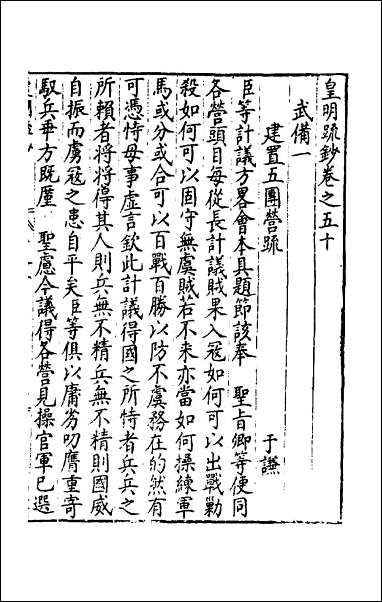 皇明疏鈔卷之五十
武備一
建置五團營疏 于謙
臣等計議方畧會本具題節該奉 聖旨卿等便同
各營頭目每從長計議賊果入冦如何可以出戰勦
殺如何可以固守無虞賊若不來亦當如何操練軍
馬或分或合可以百戰百勝以防不虞務在的然有
可憑恃毋事虚言欽此計議得國之所恃者兵兵之
所賴者將將得其人則兵無不精兵無不精則國威
自振而虜冦之患自平矣臣等俱以庸劣叨膺重寄
馭兵乖方既厪 聖慮今議得各營見操官軍已選